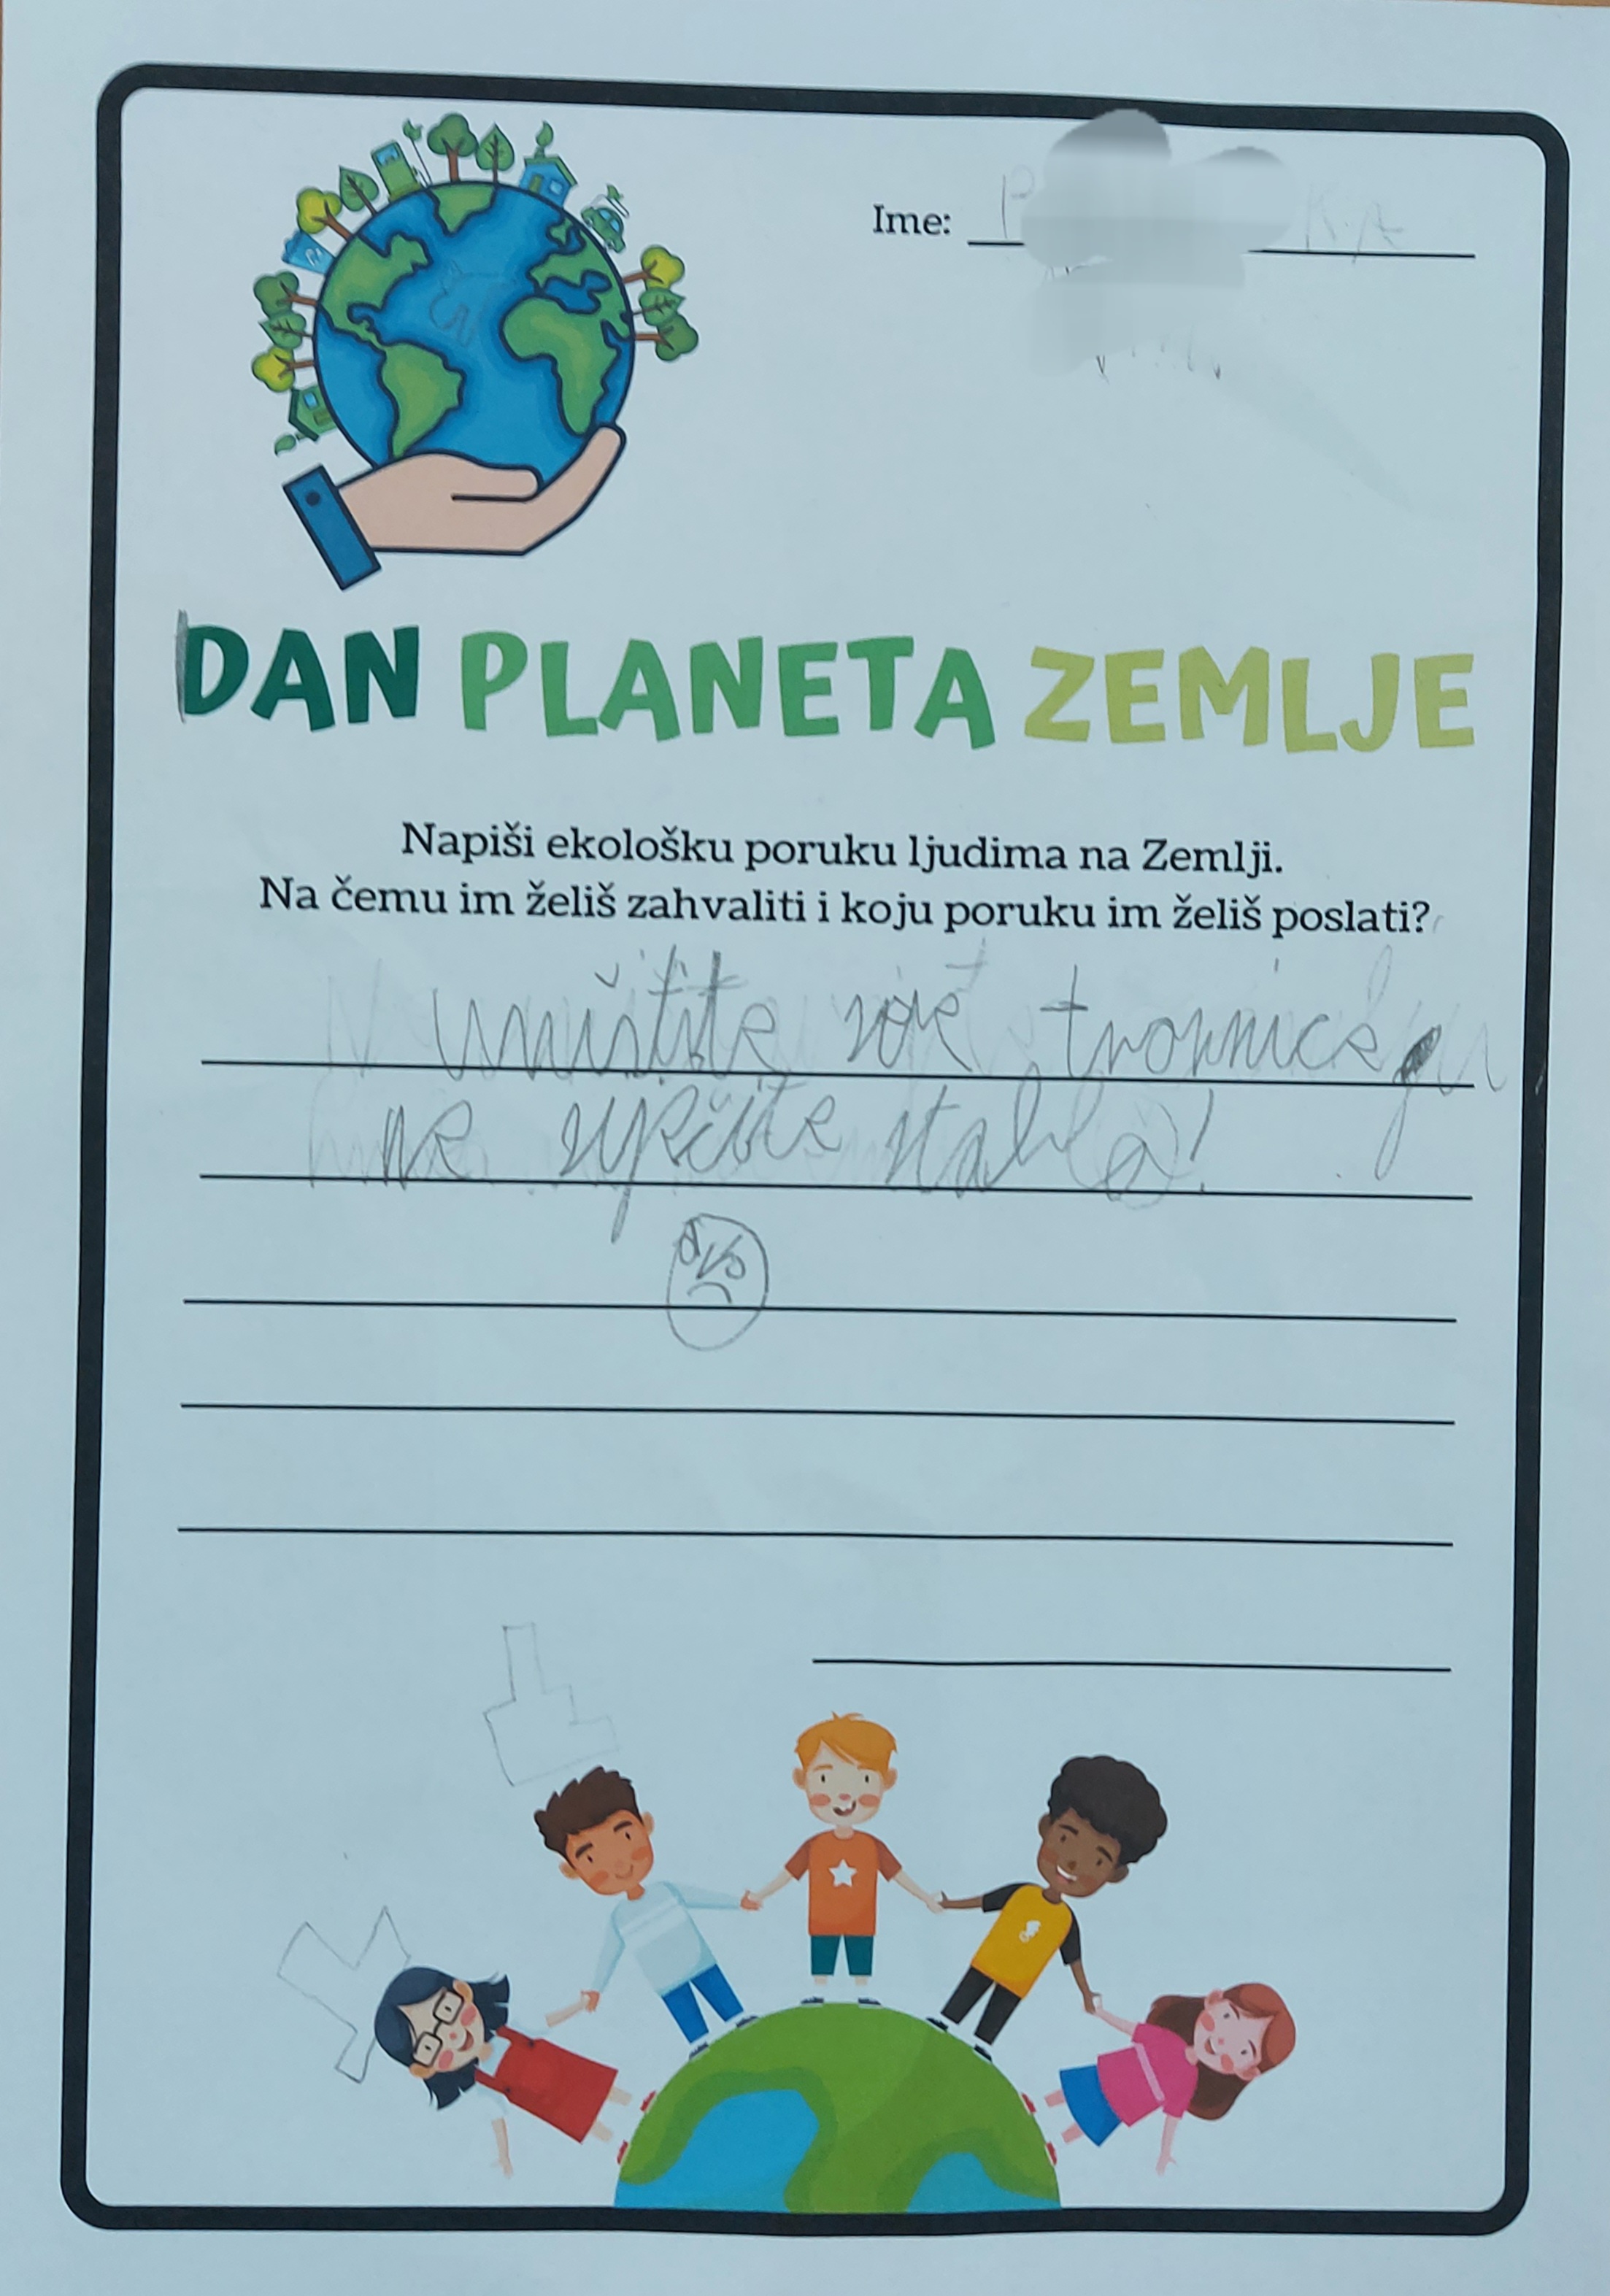 Ime:
DAN PLANETA ZEMLJE
Napiši ekološku poruku ljudima na Zemlji.
Na čemu im želiš zahvaliti i koju poruku im želiš poslati?
uništite sve tvornice
ne sjecite stabla!